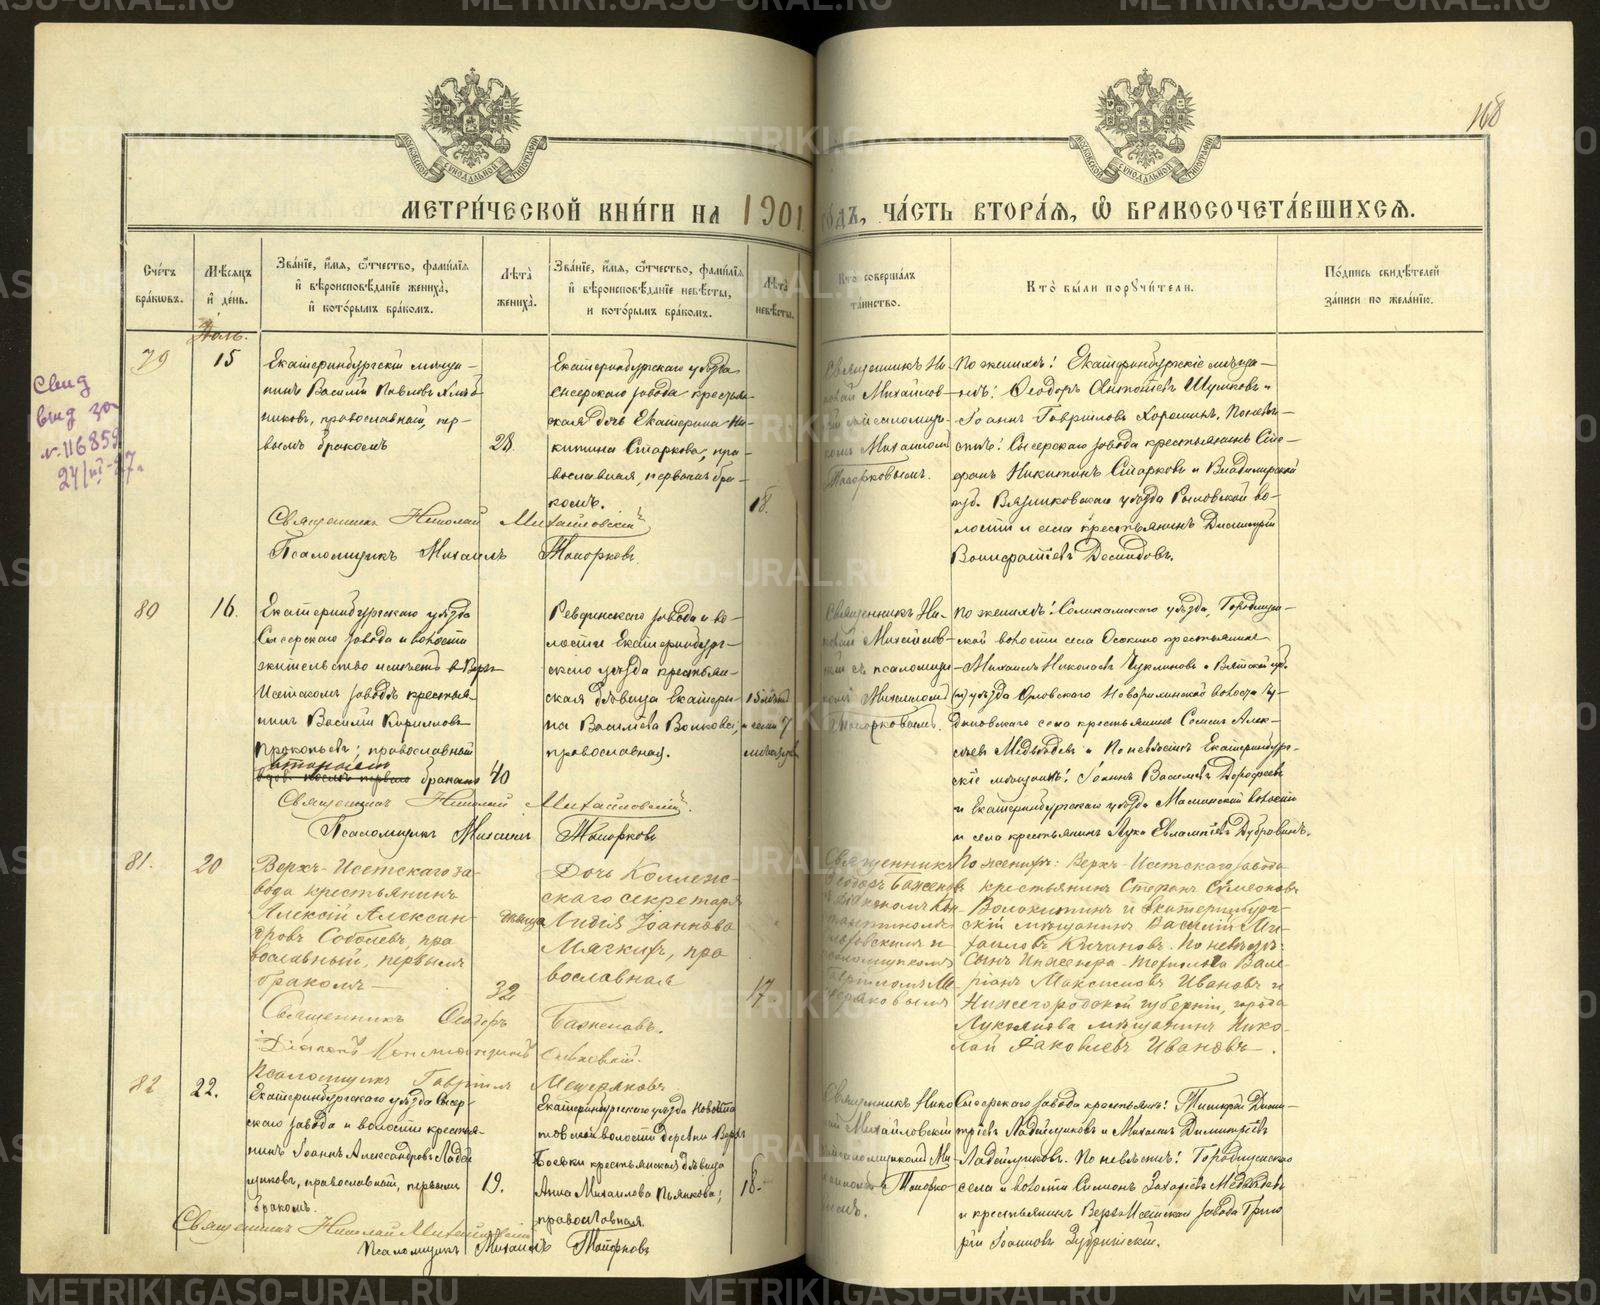 168
МЕТРИ́ЧЕСКОЙ КНИ́ГИ НА 1901 го́дъ, ЧА́СТЬ ВТОРА́Я, Ѽ БРАКОСОЧЕТА́ВШИХСЯ.
Сче́тъ бра́ковъ.
Мѣ́сяцъ и́ де́нь.
Зва́нїе, и́мя, ѻ҆́тчество, фами́лїя и҆ вѣроисповѣ́данїе жениха̀, и҆ кото́рымъ бра́комъ.
Лѣта̀ жениха̀.
Зва́нїе, и́мя, ѻ҆́тчество, фами́лїя и҆ вѣроисповѣ́данїе невѣ́сты, и кото́рымъ бра́комъ.
Лѣта̀ невѣ́сты.
Кто̀ соверша́лъ та́инство.
Кто̀ бы́ли порꙋчи́тели.
По́дпись свидѣ́телей за́писи по жела́нїю.
Свид
выд за
№ 116859
79
15
Екатеринбургскій мѣща-
нинъ Василій Павловъ Хлѣб
никовъ, православный, пер-
вымъ бракомъ
28
Екатеринбургскаго уѣзда
Сысерскаго завода крестьян-
ская дочь Екатерина Ни-
китина Старкова, пра-
вославная, первымъ бра-
комъ.
18.
Священникъ Ни-
колай Михайлов-
скій съ псаломщи-
комъ Михаиломъ
Топорковымъ.
По женихѣ: Екатеринбургскіе мѣща-
нѣ: Ѳеодоръ Антоніевъ Шушковъ и
Іоаннъ Гавриловъ Хорошинъ. По невѣ-
стѣ: Сысерскаго завода крестьянинъ Сте-
фанъ Никитинъ Старковъ и Владимірской
губ. Вязниковскаго уѣзда Рыловской во-
лости и села крестьянинъ Димитрій
Вонифатіевъ Демидовъ.
Священникъ Николай Михайловскій
Псаломщикъ Михаилъ Топорковъ.
80
16.
Екатеринбургскаго уѣзда
Сысерскаго завода и волости
жительство имѣетъ в Верх-
Исетскомъ заводѣ крестья-
нинъ Василій Кирилловъ
Прокопьевъ; православный
вторымъ
вдовъ послѣ перваго бракомъ
40
Ревдинскаго завода и во-
лости Екатеринбург-
скаго уѣзда крестьян-
ская дѣвица Екатери-
на Васильева Волкова;
православная.
15 лѣтъ
и семь 7
мѣсяцевъ
Священникъ Ни-
колай Михайлов-
скій съ псаломщи-
комъ Михаиломъ
Топорковымъ.
По женихѣ: Соликамскаго уѣзда, Городищен-
ской волости села Осокино крестьянинъ
Михаилъ Николаевъ Чуклиновъ и Вятской губ.
уѣзда Орловскаго
крестьянинъ Семенъ Алек-
сѣевъ Медвѣдевъ и По невѣстѣ Екатеринбург-
скіе мѣщане: Іоаннъ Васильевъ Дорофеевъ
и Екатеринбургскаго уѣзда Маминской волости
и села крестьянинъ Лука Евлампіевъ Дубровинъ.
Священникъ Николай Михайловскій.
Псаломщикъ Михаилъ Топорковъ
81.
20
Верхъ-Исетскаго за-
вода крестьянинъ
Алексій Алексан-
дровъ Соболевъ, пра
вославный, первымъ
бракомъ
32
Дочь Коллеж-
скаго секретаря
дѣвица Лидія Іоаннова
Мягкихъ, пра
вославная
17
Священникъ
Ѳеодоръ Баженовъ
съ діакономъ Кон-
и
псаломщикомъ
Гавріиломъ Ме-
щеряковымъ
По женихѣ: Верхъ-Исетскаго завода
крестьянинъ Стефанъ Сѵмеоновъ
Волокитинъ и екатеринбург-
скій мѣщанинъ Василій Ми-
хаиловъ Кичановъ. По невѣстѣ:
сынъ Инженера-техника Вале-
ріанъ Максимовъ Ивановъ и
Нижегородской губерніи, города
Лукоянова мѣщанинъ Нико-
лай Яковлевъ Ивановъ.
Священникъ Ѳеодоръ Баженовъ.
Діаконъ Константинъ
Псаломщикъ Гавріилъ Мещеряковъ
82
22.
Екатеринбургскаго уѣзда Сысер-
скаго завода и волости крестья-
нинъ Іоаннъ Александровъ Ладей
щиковъ, православный, первымъ
бракомъ.
19.
Екатеринбургскаго уѣзда Новоипа
товской волости деревни Верхъ
Боевки крестьянская дѣвица
Анна Михаилова Пьянкова;
православная.
18.
Священникъ Нико
лай Михайловскій
съ псаломщикомъ Ми-
хаиломъ Топорко
вымъ.
Сысерскаго завода крестьяне: Димит-
ріевъ Ладейщиковъ и Михаилъ Димитріевъ
Ладейщиковъ. По невѣстѣ: Городищенскаго
села и волости Симонъ Захаріевъ Медвѣдевъ
и крестьянинъ Верхъ-Исетскаго завода Григо
рій Іоанновъ Зубрицкій.
Священникъ Николай Михайловскій
Псаломщикъ Михаилъ Топорковъ
METRIKI.GASO-URAL.RU